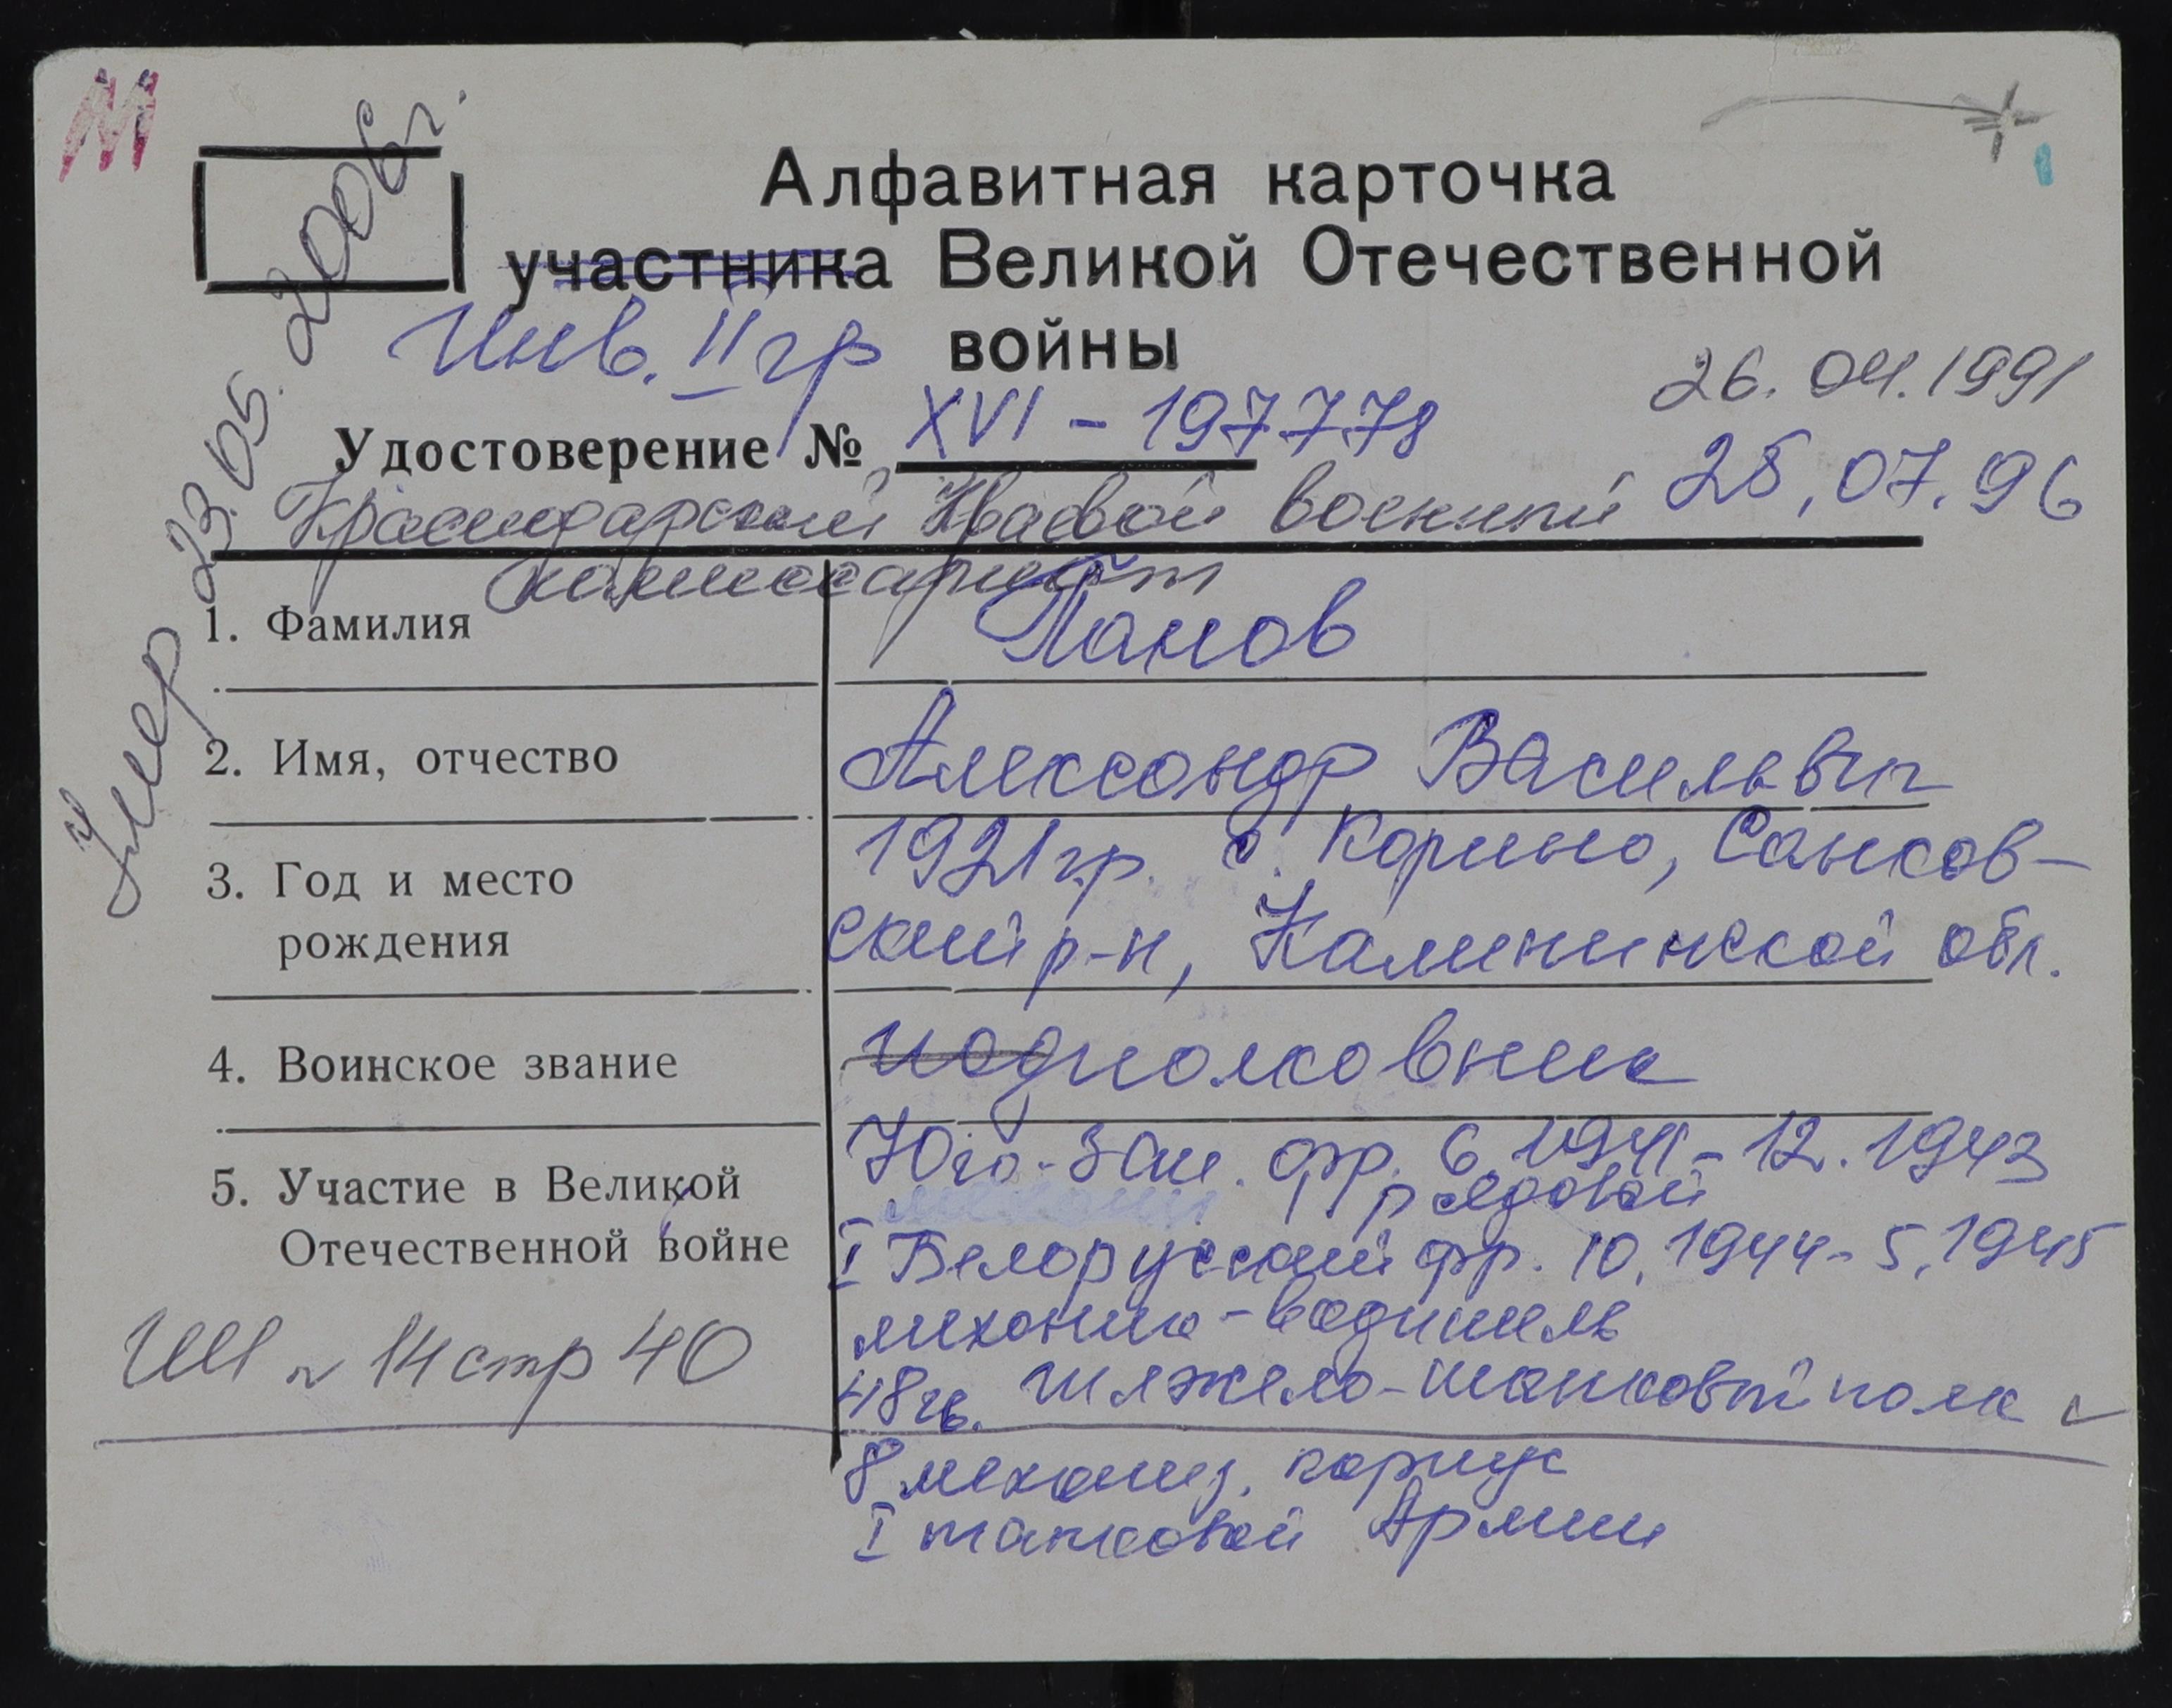 М
Алфавитная карточка
участника Великой Отечественной
Инв. II гр войны
26.04.1991
Удостоверение № XVI - 197778
25.07.96
Краснодарский Краевой военный
комиссариат
Умер 23.05.2006г.
1. Фамилия Панов
2. Имя, отчество Александр Васильевич
3. Год и место 1921 г.р. д. Корино, Сансов-
рождения ский р-н, Калининской обл.
4. Воинское звание подполковник
Юго-Зап. фр. 6.1941 - 12.1943
5. Участие в Великой рядовой
Отечественной войне I Белорусский фр. 10.1944 - 5.1945
механик-водитель
14 стр 40 48 гв. тяжело-танковый полк
8 механиз. корпус
I танковой Армии